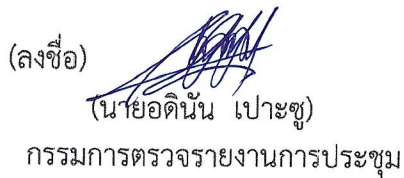 (ลงชื่อ)
(นายอดินัน เปาะซู)
กรรมการตรวจรายงานการประชุม